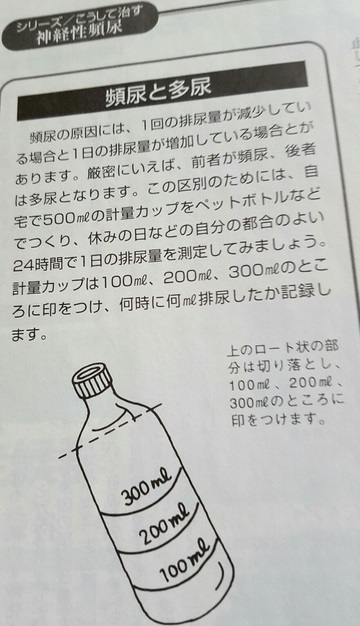 シリーズ/こうして治す
神経性頻尿
頻尿と多尿
頻尿の原因には、1回の排尿量が減少してい
る場合と1日の排尿量が増加している場合とが
あります。厳密にいえば、前者が頻尿、後者
は多尿となります。この区別のためには、自
宅で500㎖の計量カップをペットボトルなど
でつくり、休みの日などの自分の都合のよい
24時間で1日の排尿量を測定してみましょう。
計量カップは100㎖、200㎖、300㎖のとこ
ろに印をつけ、何時に何㎖排尿したか記録し
ます。
上のロート状の部
分は切り落とし、
100㎖、200㎖、
300㎖のところに
印をつけます。
300ml
200ml
100ml